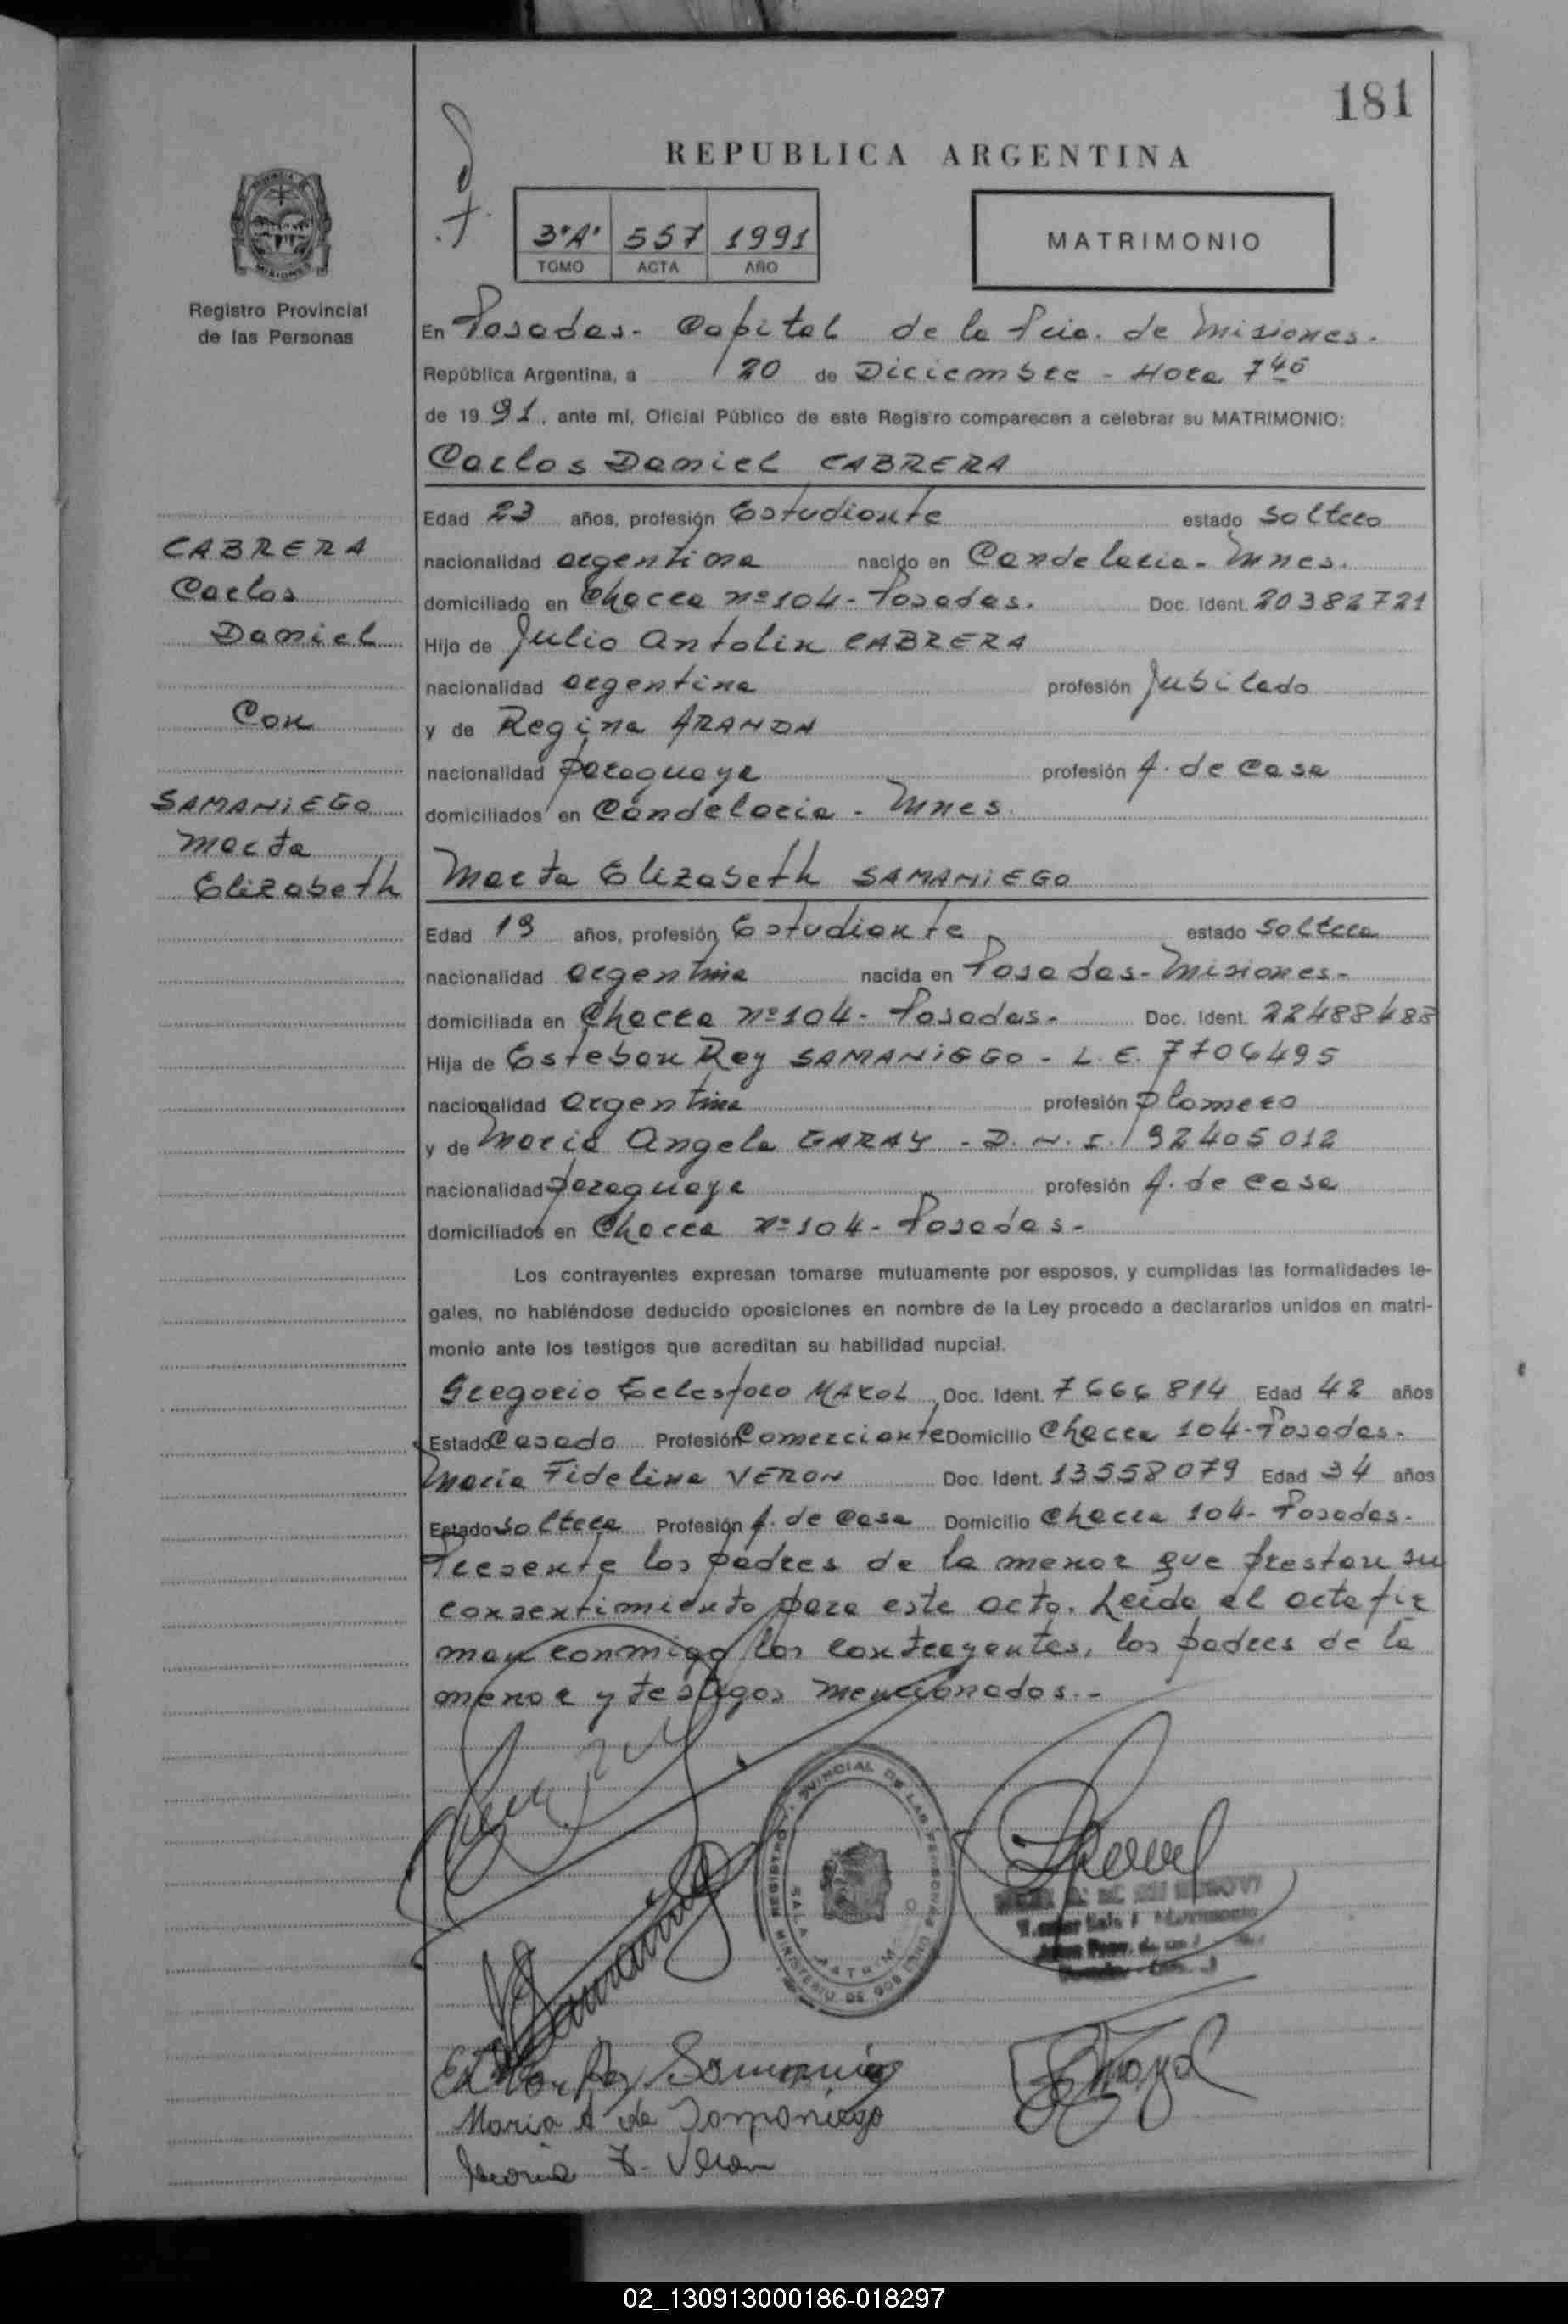 181
REPUBLICA ARGENTINA
3º"A" 557 1991
TOMO ACTA AÑO
MATRIMONIO
PROVINCIA
MISIONES
Registro Provincial
de las Personas
En Posadas - Capital de la Pcia. de Misiones.
República Argentina, a 20 de Diciembre - Hora 7 40
de 19 91, ante mí, Oficial Público de este Registro comparecen a celebrar su MATRIMONIO:
Carlos Daniel CABRERA
Edad 23 años, profesión Estudiante estado Soltero
nacionalidad argentina nacido en Candelaria - Mnes.
domiciliado en Chacra nº 104 - Posadas. Doc. Ident. 20382721
Hijo de Julio Antolin CABRERA
nacionalidad argentina profesión Jubilado
y de Regina ARANDA
nacionalidad paraguaya profesión A. de Casa
domiciliados en Candelaria - Mnes.
CABRERA
Carlos
Daniel
Con
SAMANIEGO
Marta
Elizabeth
Marta Elizabeth SAMANIEGO
Edad 19 años, profesión Estudiante estado Soltera
nacionalidad argentina nacida en Posadas - Misiones -
domiciliada en Chacra nº 104 - Posadas - Doc. Ident.
Hija de Esteban Rey SAMANIEGO - L. E. 7706495
nacionalidad argentina profesión plomero
y de Maria Angela GARAY - D. N. I. 92405012
nacionalidad paraguaya profesión A. de Casa
domiciliados en Chacra nº 104 - Posadas -
Los contrayentes expresan tomarse mutuamente por esposos, y cumplidas las formalidades le-
gales, no habiéndose deducido oposiciones en nombre de la Ley procedo a declararlos unidos en matri-
monio ante los testigos que acreditan su habilidad nupcial.
Gregorio MAKOL Doc. Ident. 7666814 Edad 42 años
Estado Casado Profesión Comerciante Domicilio Chacra 104 - Posadas.
Maria Fidelina VERON Doc. Ident. 13558079 Edad 34 años
Estado Soltera Profesión A. de Casa Domicilio Chacra 104 - Posadas.
Presente los padres de la menor que prestan su
consentimiento para este acto. Leida el acta fir
man conmigo los contrayentes, los padres de la
menor y testigos mencionados. -
REGISTRO PROVINCIAL DE LAS PERSONAS
SALA MATRIMONIO
MINISTERIO DE GOBIERNO
Maria A de Samaniego
Maria F. Veron
02_130913000186-018297